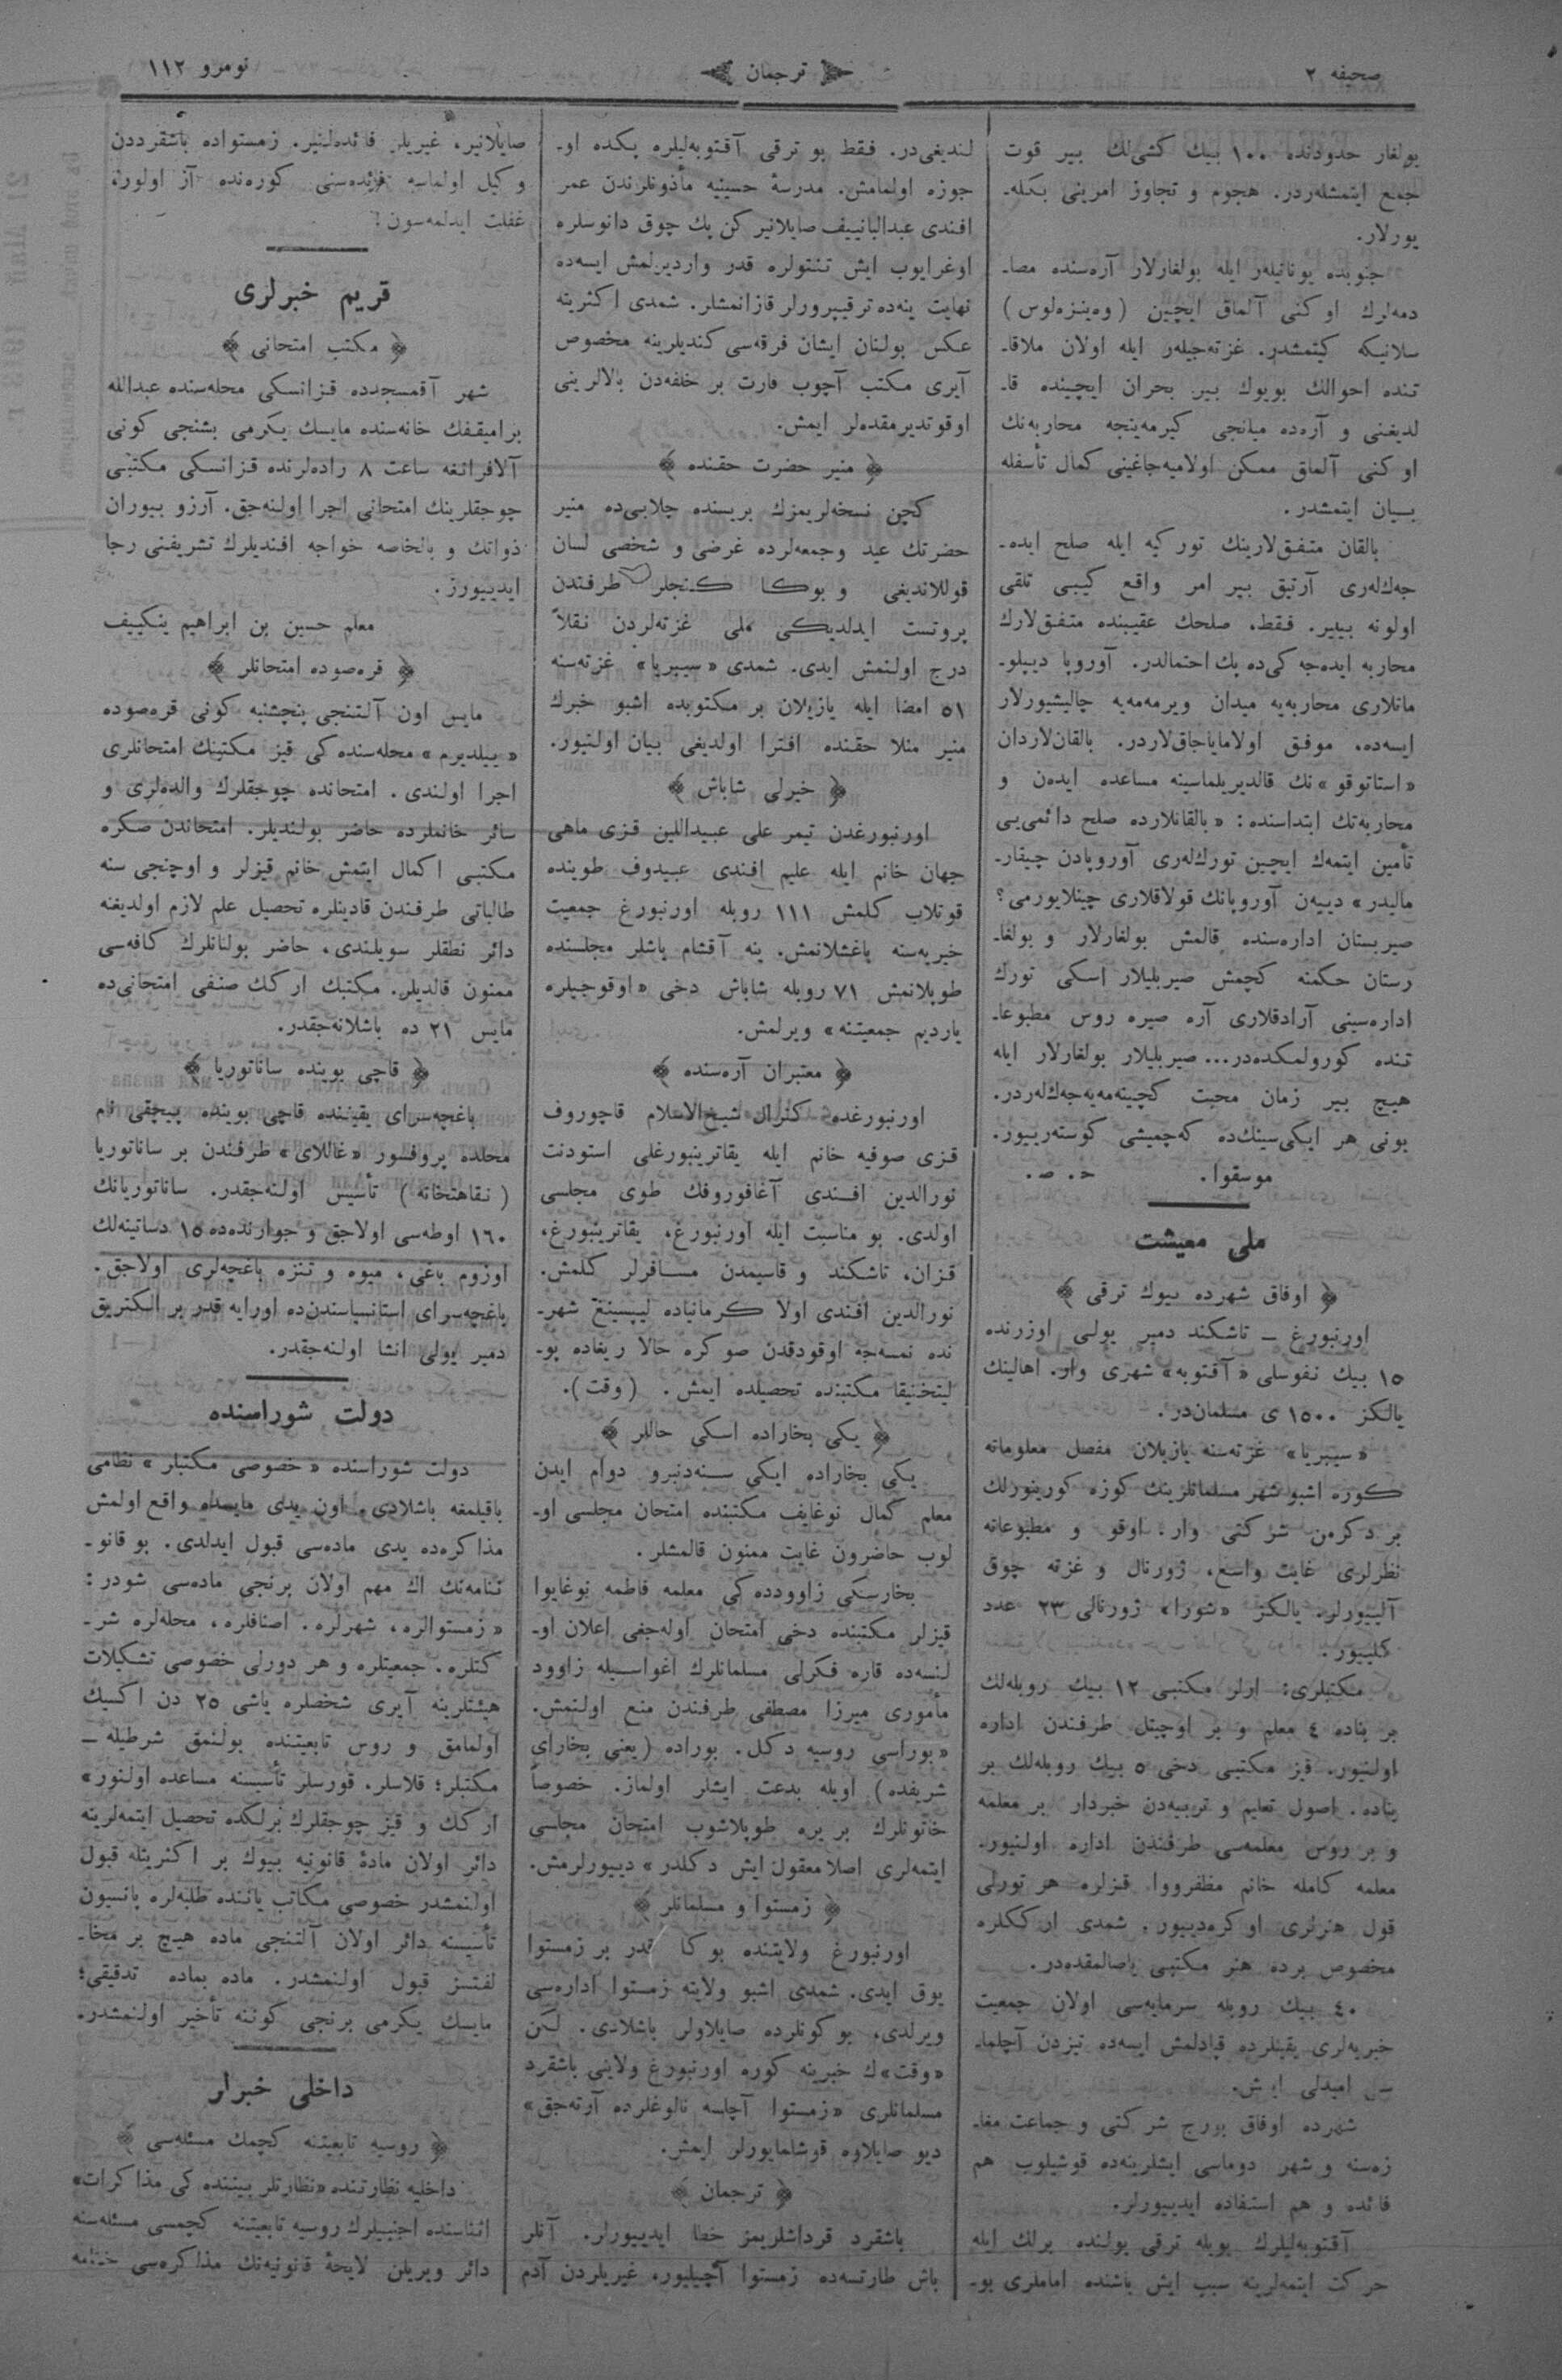 صحیفه ٢
ترجمان
نومرو ١١٢
بولغار حدودنده ١٠٠ بیك كشی‌لك بیر قوت
جمع ایتمشلەردر. هجوم و تجاوز امرینی بكله‌ـ
یورلار.
جنوبده یونانیلەر ایله بولغارلار آره‌سنده مصاـ
دمەلرك اوكنی آلماق ایچین (وەینزەلوس)
سلانیكه كیتمشدر. غزته‌جیلەر ایله اولان ملاقاـ
تنده احوالك بویوك بیر بحران ایچینده قاـ
لدیغنی و آره‌ده میانجی كیرمەینجه محاربه‌نك
اوكنی آلماق ممكن اولامیه‌جاغینی كمال تأسفله
بیان ایتمشدر.
بالقان متفق‌لارینك توركیه ایله صلح ایده‌ـ
جەك‌لەری آرتیق بیر امر واقع كیبی تلقی
اولونه بیلیر. فقط، صلحك عقیبنده متفق‌لارك
محاربه ایده‌جەكی‌ده پك احتمالدر. آوروپا دیپلوـ
ماتلاری محاربه‌یه میدان ویرمەمەیه چالیشیورلار
ایسه‌ده، موفق اولامایاجاق‌لاردر. بالقان‌لاردان
«استاتوقو»نك قالدیریلماسینه مساعده ایدەن و
محاربه‌نك ابتداسنده: «بالقانلارده صلح دائمی‌یی
تأمین ایتمەك ایچین تورك‌لەری آوروپادن چیقارـ
مالیدر» دییەن آوروپانك قولاقلاری چینلایورمی؟
صیربستان اداره‌سنده قالمش بولغارلار و بولغاـ
رستان حكمنه كچمش صیربلیلار اسكی تورك
اداره‌سینی آرادقلاری آره صیره روس مطبوعاـ
تنده كورولمكده‌در... صیربلیلار بولغارلار ایله
هیچ بیر زمان محبت كچینەمەیه‌جەك‌لەردر.
بونی هر ایكی‌سینك‌ده كەچمیشی كوستەرییور.
موسقوا. ح. ص.
ملی معیشت
﴿ اوفاق شهرده بیوك ترقی ﴾
اورنبورغ ــ تاشكند دمیر یولی اوزرنده
١٥ بیك نفوسلی «آقتوبه» شهری وار. اهالینك
یالكز ١٥٠٠ ی مسلمان‌در.
«سیبریا» غزته‌سنه یازیلان مفصل معلوماته
كوره اشبو شهر مسلمانلرینك كوزه كورینورلك
بر دكرمن شركتی وار. اوقو و مطبوعاته
نظرلری غایت واسع، ژورنال و غزته چوق
آلییورلر. یالكز «شورا» ژورنالی ٢٣ عدد
كلییور.
مكتبلری: ارلر مكتبی ١٢ بیك روبله‌لك
بر بناده ٤ معلم و بر اوچیتل طرفندن اداره
اولنیور. قیز مكتبی دخی ٥ بیك روبله‌لك بر
بناده. اصول تعلیم و تربیه‌دن خبردار بر معلمه
و بر روس معلمه‌سی طرفندن اداره اولنیور.
معلمه كامله خانم مظفرووا قزلره هر تورلی
قول هنرلری اوكره‌دییور. شمدی ارككلره
مخصوص برده هنر مكتبی یاصالمقده‌در.
٤٠ بیك روبله سرمایه‌سی اولان جمعیت
خبریه‌لری یقینلرده قپادلمش ایسه‌ده تیزدن آچلماـ
سی امیدلی ایمش.
شهرده اوفاق بورج شركتی و جماعت مغاـ
زه‌سنه و شهر دوماسی ایشلرینه‌ده قوشیلوب هم
فائده و هم استفاده ایدییورلر.
آقتوبه‌لیلرك بویله ترقی یولنده برلك ایله
حركت ایتمه‌لرینه سبب ایش باشنده اماملری بوـ
لندیغی‌در. فقط بو ترقی آقتوبه‌لیلره پكده اوـ
جوزه اولمامش. مدرسهٔ حسینیه مأذونلرندن عمر
افندی عبدالبانییف صایلانیر كن پك چوق دانوسلره
اوغرایوب ایش تنتولره قدر واردیرلمش ایسه‌ده
نهایت ینه‌ده ترقیپرورلر قازانمشلر. شمدی اكثریته
عكس بولنان ایشان فرقه‌سی كندیلرینه مخصوص
آیری مكتب آچوب قارت بر خلفه‌دن بالالرینی
اوقوتدیرمقده‌لر ایمش.
﴿ منیر حضرت حقنده ﴾
كچن نسخه‌لریمزك بریسنده چلابی‌ده منیر
حضرتك عید وجمعه‌لرده غرضی و شخصی لسان
قوللاندیغی و بوكا كنجلر طرفندن
پروتست ایدلدیكی ملی غزته‌لردن نقلاً
درج اولنمش ایدی. شمدی «سیبریا» غزته‌سنه
٥١ امضا ایله یازیلان بر مكتوبده اشبو خبرك
منیر منلا حقنده افترا اولدیغی بیان اولنیور.
﴿ خیرلی شاباش ﴾
اورنبورغدن تیمر علی عبیداللین قزی ماهی
جهان خانم ایله علیم افندی عبیدوف طوینده
قوتلاب كلمش ١١١ روبله اورنبورغ جمعیت
خیریه‌سنه باغشلانمش. ینه آقشام یاشلر مجلسنده
طوپلانمش ٧١ روبله شاباش دخی «اوقوجیلره
یاردیم جمعیتنه» ویرلمش.
﴿ معتبران آره‌سنده ﴾
اورنبورغده كنرال شیخ‌الاسلام قاچوروف
قزی صوفیه خانم ایله یقاترینبورغلی استودنت
نورالدین افندی آغافوروفك طوی مجلسی
اولدی. بو مناسبت ایله اورنبورغ، یقاترینبورغ،
قزان، تاشكند و قاسیمدن مسافرلر كلمش.
نورالدین افندی اولا كرمانیاده لیپسیغ شهرـ
نده نمسه‌جه اوقودقدن صوكره حالا ریغاده پوـ
لیتخنیقا مكتبنده تحصیلده ایمش. (وقت).
﴿ یكی بخاراده اسكی حاللر ﴾
یكی بخاراده ایكی سنه‌دنبرو دوام ایدن
معلم كمال نوغایف مكتبنده امتحان مجلسی اوـ
لوب حاضرون غایت ممنون قالمشلر.
بخارسكی زاوودده‌كی معلمه فاطمه نوغایوا
قیزلر مكتبنده دخی امتحان اوله‌جغی اعلان اوـ
لنسه‌ده قاره فكرلی مسلمانلرك اغواسیله زاوود
مأموری میرزا مصطفی طرفندن منع اولنمش.
«بوراسی روسیه دكل. بوراده (یعنی بخارای
شریفده) اویله بدعت ایشلر اولماز. خصوصاً
خاتونلرك بر یره طوپلاشوب امتحان مجلسی
ایتمه‌لری اصلا معقول ایش دكلدر» دییورلرمش.
﴿ زمستوا و مسلمانلر ﴾
اورنبورغ ولایتنده بوكا قدر بر زمستوا
یوق ایدی. شمدی اشبو ولایته زمستوا اداره‌سی
ویرلدی، بو كونلرده صایلاولر باشلادی. لكن
«وقت»ك خبرینه كوره اورنبورغ ولاینی باشقرد
مسلمانلری «زمستوا آچلسه نالوغلرده آرته‌جق»
دیو صایلاوه قوشلمایورلر ایمش.
﴿ ترجمان ﴾
باشقرد قرداشلریمز خطا ایدییورلر. آنلر
باش طارتسه‌ده زمستوا آچیلیور، غیریلردن آدم
صایلانیر، غیریلر فائده‌لنیر. زمستواده باشقرددن
وكیل اولماسه فائده‌سنی كوره‌نده آز اولور،
غفلت ایدلمه‌سون!
قریم خبرلری
﴿ مكتب امتحانی ﴾
شهر آقمسجدده قزانسكی محله‌سنده عبدالله
برامیقفك خانه‌سنده مایسك یكرمی بشنجی كونی
آلافرانغه ساعت ٨ راده‌لرنده قزانسكی مكتبی
چوجقلرینك امتحانی اجرا اولنه‌جق. آرزو بیوران
ذواتك و بالخاصه خواجه افندیلرك تشریفنی رجا
ایدییورز.
معلم حسین بن ابراهیم ینكییف
﴿ قره‌صوده امتحانلر ﴾
مایس اون آلتنجی پنچشنبه كونی قره‌صوده
«ییلدیرم» محله‌سنده‌كی قیز مكتبنك امتحانلری
اجرا اولندی. امتحانده چوجقلرك والده‌لری و
سائر خانملرده حاضر بولندیلر. امتحاندن صكره
مكتبی اكمال ایتمش خانم قیزلر و اوچنچی سنه
طالباتی طرفندن قادینلره تحصیل علم لازم اولدیغنه
دائر نطقلر سویلندی، حاضر بولنانلرك كافه‌سی
ممنون قالدیلر. مكتبك اركك صنفی امتحانی‌ده
مایس ٢١ ده باشلانه‌جقدر.
﴿ قاچی بوینده ساناتوریا ﴾
باغچه‌سرای یقیننده قاچی بوینده بیچقی نام
محلده پروفسور «غاللای» طرفندن بر ساناتوریا
(نقاهتخانه) تأسیس اولنه‌جقدر. ساناتوریانك
١٦٠ اوطه‌سی اولاجق و جوارنده‌ده ١٥ دساتینه‌لك
اوزوم باغی، میوه و تنزه باغچه‌لری اولاجق.
باغچه‌سرای استانسیاسندن‌ده اورایه قدر بر الكتریق
دمیر یولی انشا اولنه‌جقدر.
دولت شوراسنده
دولت شوراسنده «خصوصی مكتبلر» نظامی
باقیلمغه باشلادی. اون یدی مایسده واقع اولمش
مذاكره‌ده یدی ماده‌سی قبول ایدلدی. بو قانوـ
ننامه‌نك اك مهم اولان برنجی ماده‌سی شودر:
«زمستوالره، شهرلره. اصنافلره، محله‌لره شرـ
كتلره. جمعیتلره و هر دورلی خصوصی تشكیلات
هیئتلرینه آیری شخصلره یاشی ٢٥ دن اكسیك
اولمامق و روس تابعیتنده بولنمق شرطیله ــ
مكتبلر؛ قلاسلر. قورسلر تأسیسنه مساعده اولنور»
اركك و قیز چوجقلرك برلكده تحصیل ایتمه‌لرینه
دائر اولان مادهٔ قانونیه بیوك بر اكثریتله قبول
اولنمشدر خصوصی مكاتب یاننده طلبه‌لره پانسیون
تأسیسنه دائر اولان آلتنجی ماده هیچ بر مخاـ
لفتسز قبول اولنمشدر. ماده بماده تدقیقی؛
مایسك یكرمی برنجی كوننه تأخیر اولنمشدر.
داخلی خبرلر
﴿ روسیه تابعیتنه كچمك مسئله‌سی ﴾
داخلیه نظارتنده «نظارتلر بیننده‌كی مذاكرات»
اثناسنده اجنبیلرك روسیه تابعیتنه كچمسی مسئله‌سنه
دائر ویریلن لایحهٔ قانونیه‌نك مذاكره‌سی ختامه